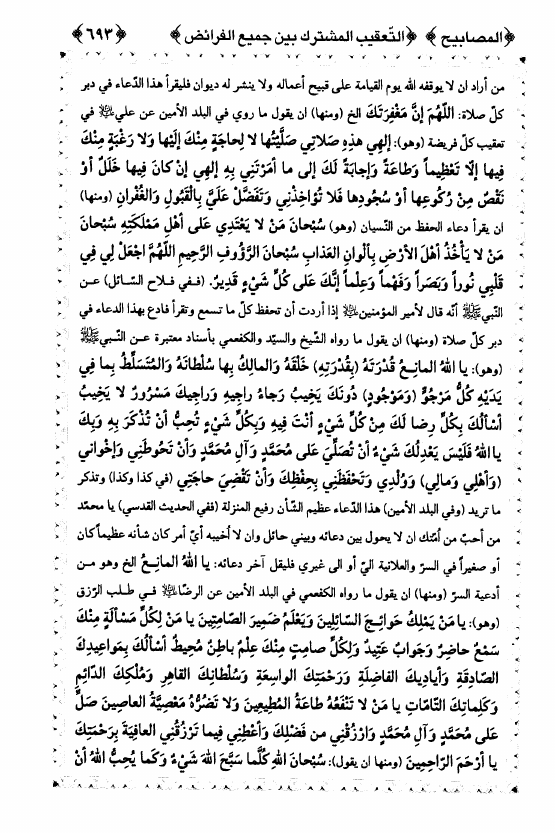 ﴿المصابيح﴾ ﴿التّعقيب المشترك بين جميع الفرائض﴾ ﴿٦٩٣﴾
من أراد ان لا يوقفه الله يوم القيامة على قبيح أعماله ولا ينشر له ديوان فليقرأ هذا الدّعاء في دبر
كلّ صلاة: اللّهُمَّ إنَّ مَغْفِرَتَكَ الخ (ومنها) ان يقول ما روي في البلد الأمين عن علي ﷺ في
تعقيب كلّ فريضة (وهو): إلهِي هذِهِ صَلاتي صَلَّيْتُها لا لِحاجَةٍ مِنْكَ إلَيْها وَلا رَغْبَةٍ مِنْكَ
فِيها إلّا تَعْظِيماً وَطاعَةً وَإجابَةً لَكَ إلى ما أمَرْتَنِي بِهِ إلهِي إنْ كانَ فِيها خَلَلٌ أوْ
نَقْصٌ مِنْ رُكُوعِها أوْ سُجُودِها فَلا تُؤاخِذْنِي وَتَفَضَّلْ عَلَيَّ بِالْقَبُولِ وَالْغُفْرانِ (ومنها)
ان يقرأ دعاء الحفظ من النّسيان (وهو) سُبْحانَ مَنْ لا يَعْتَدِي عَلى أهْلِ مَمْلَكَتِهِ سُبْحانَ
مَنْ لا يَأْخُذُ أهْلَ الأرْضِ بِألْوانِ العَذابِ سُبْحانَ الرَّؤُوفِ الرَّحِيمِ اللّهُمَّ اجْعَلْ لِي فِي
قَلْبِي نُوراً وَبَصَراً وَفَهْماً وَعِلْماً إنَّكَ عَلى كُلِّ شَيْءٍ قَدِيرٌ. (ففي فلاح السّائل) عن
النّبي ﷺ أنّه قال لأمير المؤمنين ﷺ إذا أردت أن تحفظ كلّ ما تسمع وتقرأ فادع بهذا الدعاء في
دبر كلّ صلاة (ومنها) ان يقول ما رواه الشّيخ والسيّد والكفعمي بأسناد معتبرة عن النّبي ﷺ
(وهو): يا اللهُ المانِعُ قُدْرَتَهُ (بِقُدْرَتِهِ) خَلْقَهُ وَالمالِكُ بِها سُلْطانَهُ وَالمُتَسَلِّطُ بِما فِي
يَدَيْهِ كُلُّ مَرْجُوٍّ (وَمَوْجُودٍ) دُونَكَ يَخِيبُ رَجاءُ راجِيهِ وَراجِيكَ مَسْرُورٌ لا يَخِيبُ
أسْألُكَ بِكُلِّ رِضا لَكَ مِنْ كُلِّ شَيْءٍ أنْتَ فِيهِ وَبِكُلِّ شَيْءٍ تُحِبُّ أنْ تُذْكَرَ بِهِ وَبِكَ
يا اللهُ فَلَيْسَ يَعْدِلُكَ شَيْءٌ أنْ تُصَلِّيَ عَلى مُحَمَّدٍ وَآلِ مُحَمَّدٍ وَأنْ تَحُوطَنِي وَإخْوانِي
(وَأهْلِي وَمالِي) وَوُلْدِي وَتَحْفَظَنِي بِحِفْظِكَ وَأنْ تَقْضِيَ حاجَتِي (في كذا وكذا) وتذكر
ما تريد (وفي البلد الأمين) هذا الدّعاء عظيم الشّأن رفيع المنزلة (ففي الحديث القدسي) يا محمّد
من أحبّ من أمّتك ان لا يحول بين دعائه وبيني حائل وان لا اُخيبه أيّ أمر كان شأنه عظيماً كان
أو صغيراً في السرّ والعلانية اليّ أو الى غيري فليقل آخر دعائه: يا اللهُ المانِعُ الخ وهو من
أدعية السرّ (ومنها) ان يقول ما رواه الكفعمي في البلد الأمين عن الرضا ﷺ في طلب الرّزق
(وهو): يا مَنْ يَمْلِكُ حَوائِجَ السّائِلِينَ وَيَعْلَمُ ضَمِيرَ الصّامِتِينَ يا مَنْ لِكُلِّ مَسْألَةٍ مِنْكَ
سَمْعٌ حاضِرٌ وَجَوابٌ عَتِيدٌ وَلِكُلِّ صامِتٍ مِنْكَ عِلْمٌ باطِنٌ مُحِيطٌ أسْألُكَ بِمَواعِيدِكَ
الصّادِقَةِ وَأيادِيكَ الفاضِلَةِ وَرَحْمَتِكَ الواسِعَةِ وَسُلْطانِكَ القاهِرِ وَمُلْكِكَ الدّائِمِ
وَكَلِماتِكَ التّامّاتِ يا مَنْ لا تَنْفَعُهُ طاعَةُ المُطِيعِينَ وَلا تَضُرُّهُ مَعْصِيَةُ العاصِينَ صَلِّ
عَلى مُحَمَّدٍ وَآلِ مُحَمَّدٍ وَارْزُقْنِي من فَضْلِكَ وَأعْطِنِي فِيما تَرْزُقُنِي العافِيَةَ بِرَحْمَتِكَ
يا أرْحَمَ الرّاحِمِينَ (ومنها ان يقول): سُبْحانَ اللهِ كُلَّما سَبَّحَ اللهَ شَيْءٌ وَكَما يُحِبُّ اللهُ أنْ